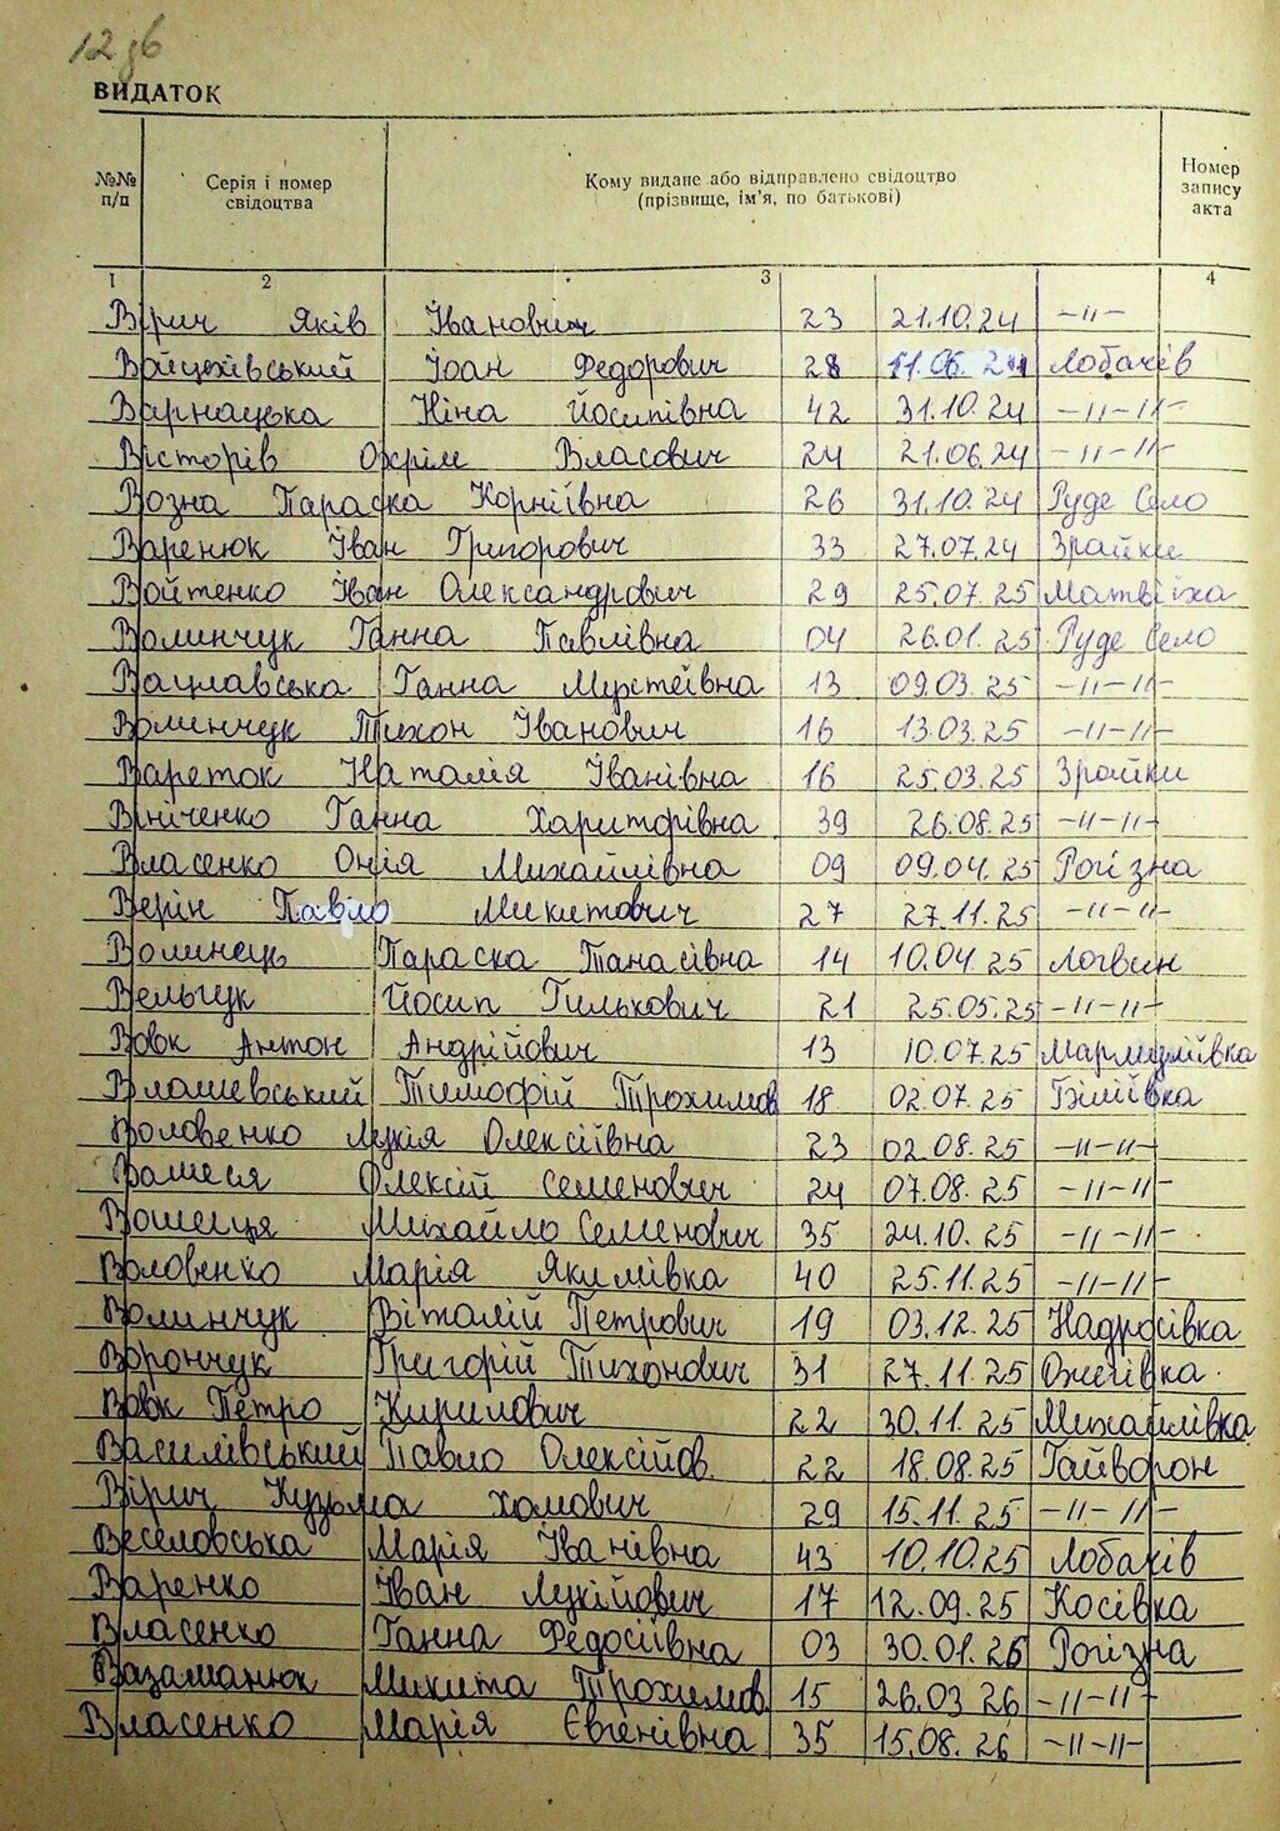 12 зв
ВИДАТОК
№№ п/п
Серія і номер свідоцтва
Кому видане або відправлено свідоцтво (прізвище, ім'я, по батькові)
Номер запису акта
1 2 3 4
Вірич Яків Іванович 23 21.10.24 -"-
Войцехівський Іоан Федорович 28 11.06.24 Лобачів
Варнацька Ніна Йосипівна 42 31.10.24 -"-"-
Вісторів Охрім Власович 24 21.06.24 -"-"-
Возна Параска Корніївна 26 31.10.24 Руде Село
Варенюк Іван Григорович 33 27.07.24 Зрайки
Войтенко Іван Олександрович 29 25.07.25 Матвіїха
Волинчук Ганна Павлівна 04 26.01.25 Руде Село
Вацлавська Ганна 13 09.03.25 -"-"-
Волинчук Тихон Іванович 16 13.03.25 -"-"-
Вареток Наталія Іванівна 16 25.03.25 Зрайки
Вініченко Ганна Харитонівна 39 26.08.25 -"-"-
Власенко Михайлівна 09 09.04.25 Рогізна
Верін Павло Микитович 27 27.11.25 -"-"-
Волинець Параска Танасівна 14 10.04.25 Логвин
Вельгук Йосип Гилькович 21 25.05.25 -"-"-
Вовк Антон Андрійович 13 10.07.25 Мармуліївка
Влашевський Тимофій Трохимов 18 02.07.25 Біліївка
Воловенко Лукія Олексіївна 23 02.08.25 -"-"-
Олексій Семенович 24 07.08.25 -"-"-
Михайло Семенович 35 24.10.25 -"-"-
Воловенко Марія Якимівка 40 25.11.25 -"-"-
Волинчук Віталій Петрович 19 03.12.25 Надросівка
Ворончук Григорій Тихонович 31 27.11.25 Ожегівка.
Вовк Петро Кирилович 22 30.11.25 Михайлівка
Василівський Павло Олексійов. 22 18.08.25 Гайворон
Вірич Кузьма Хомович 29 15.11.25 -"-"-
Веселовська Марія Іванівна 43 10.10.25 Лобачів
Варенко Іван Лукійович 17 12.09.25 Косівка
Власенко Ганна Федосіївна 03 30.01.26 Рогізна
Вазаманюк Микита Трохимов. 15 26.03.26 -"-"-
Власенко Марія Євгенівна 35 15.08.26 -"-"-